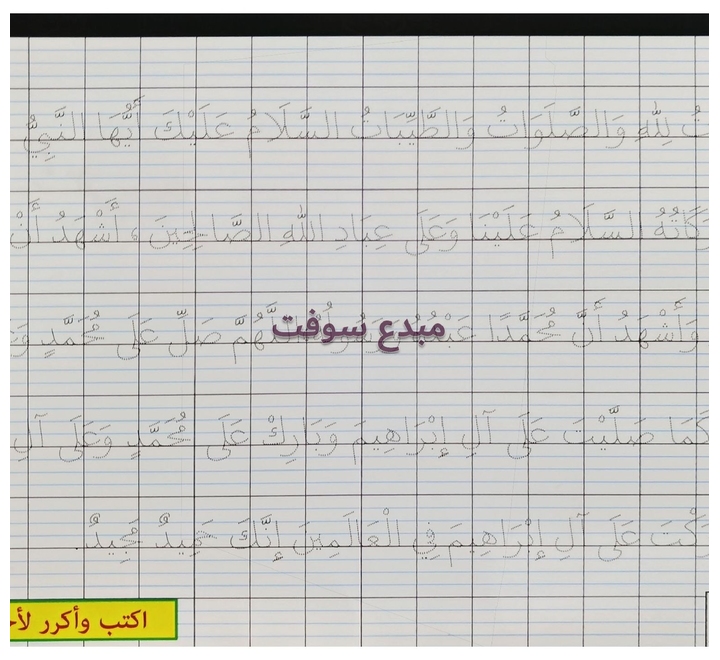 ـتُ لِلَّهِ وَالصَّلَوَاتُ وَالطَّيِّبَاتُ السَّلَامُ عَلَيْكَ أَيُّهَا النَّبِيُّ
ـرَكَاتُهُ السَّلَامُ عَلَيْنَا وَعَلَى عِبَادِ اللَّهِ الصَّالِحِينَ ، أَشْهَدُ أَنْ
وَأَشْهَدُ أَنَّ مُحَمَّدًا اللَّهُمَّ صَلِّ عَلَى مُحَمَّدٍ
مبدع سوفت
كَمَا صَلَّيْتَ عَلَى آلِ إِبْرَاهِيمَ وَبَارِكْ عَلَى مُحَمَّدٍ وَعَلَى آلِ
ـرَكْتَ عَلَى آلِ إِبْرَاهِيمَ فِي الْعَالَمِينَ إِنَّكَ حَمِيدٌ مَجِيدٌ.
اكتب وأكرر